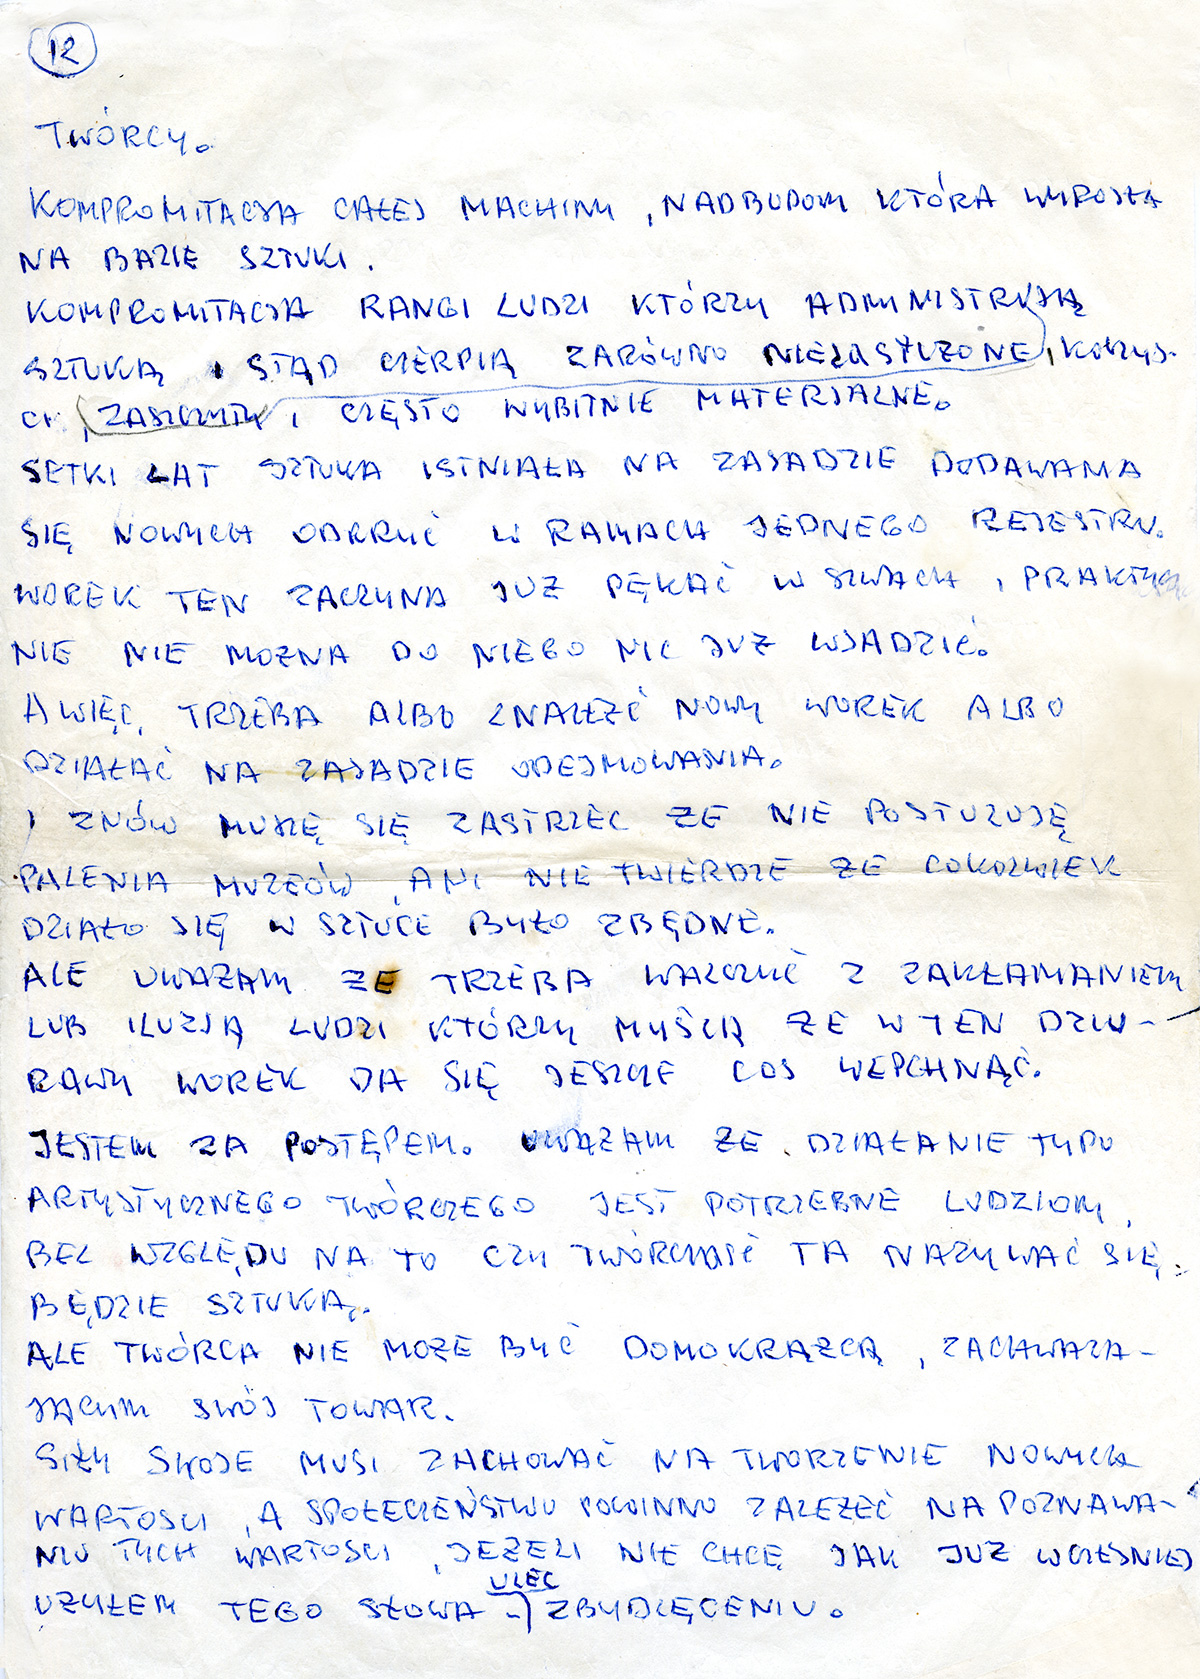 12
TWÓRCY.
KOMPROMITACJA CAŁEJ MACHINY, NADBUDOWY KTÓRA WYROSŁA
NA BAZIE SZTUKI.
KOMPROMITACJA RANGI LUDZI KTÓRZY ADMINISTRUJĄ
SZTUKĄ I STĄD CZERPIĄ ZARÓWNO NIEZASŁUŻONE, KORZYŚ-
CI, ZASZCZYTY I CZĘSTO WYBITNIE MATERJALNE.
SETKI LAT SZTUKA ISTNIAŁA NA ZASADZIE DODAWANIA
SIĘ NOWYCH ODKRYĆ W RAMACH JEDNEGO REJESTRU.
WOREK TEN ZACZYNA JUZ PĘKAĆ W SZWACH, PRAKTYCZ
NIE NIE MOZNA DO NIEGO NIC JUZ WSADZIĆ.
A WIĘC, TRZEBA ALBO ZNALEZĆ NOWY WOREK ALBO
DZIAŁAĆ NA ZASADZIE ODEJMOWANIA.
I ZNÓW MUSZĘ SIĘ ZASTRZEC ŻE NIE POSTULUJĘ
PALENIA MUZEÓW, ANI NIE TWIERDZE ŻE COKOLWIEK
DZIAŁO SIĘ W SZTUCE BYŁO ZBĘDNE.
ALE UWAZAM ŻE TRZEBA WALCZYĆ Z ZAKŁAMANIEM
LUB ILUZJĄ LUDZI KTÓRZY MYŚLĄ ŻE W TEN DZIU-
RAWY WOREK DA SIĘ JESZCZE COS WEPCHNĄĆ.
JESTEM ZA POSTĘPEM. UWAZAM ŻE DZIAŁANIE TYPU
ARTYSTYCZNEGO TWÓRCZEGO JEST POTRZEBNE LUDZIOM,
BEZ WZGLĘDU NA TO CZY TWÓRCZOŚĆ TA NAZYWAĆ SIĘ
BĘDZIE SZTUKĄ.
ALE TWÓRCA NIE MOŻE BYĆ DOMOKRĄZCĄ, ZACHWALA-
JĄCYM SWÓJ TOWAR.
SIŁY SWOJE MUSI ZACHOWAĆ NA TWORZENIE NOWYCH
WARTOSCI, A SPOŁECZEŃSTWU POWINNO ZALEŻEĆ NA POZNAWA-
NIU TYCH WARTOSCI, JEŻELI NIE CHCĘ JAK JUŻ WCZESNIEJ
UZYŁEM TEGO SŁOWA ULEC ZBYDLĘCENIU.